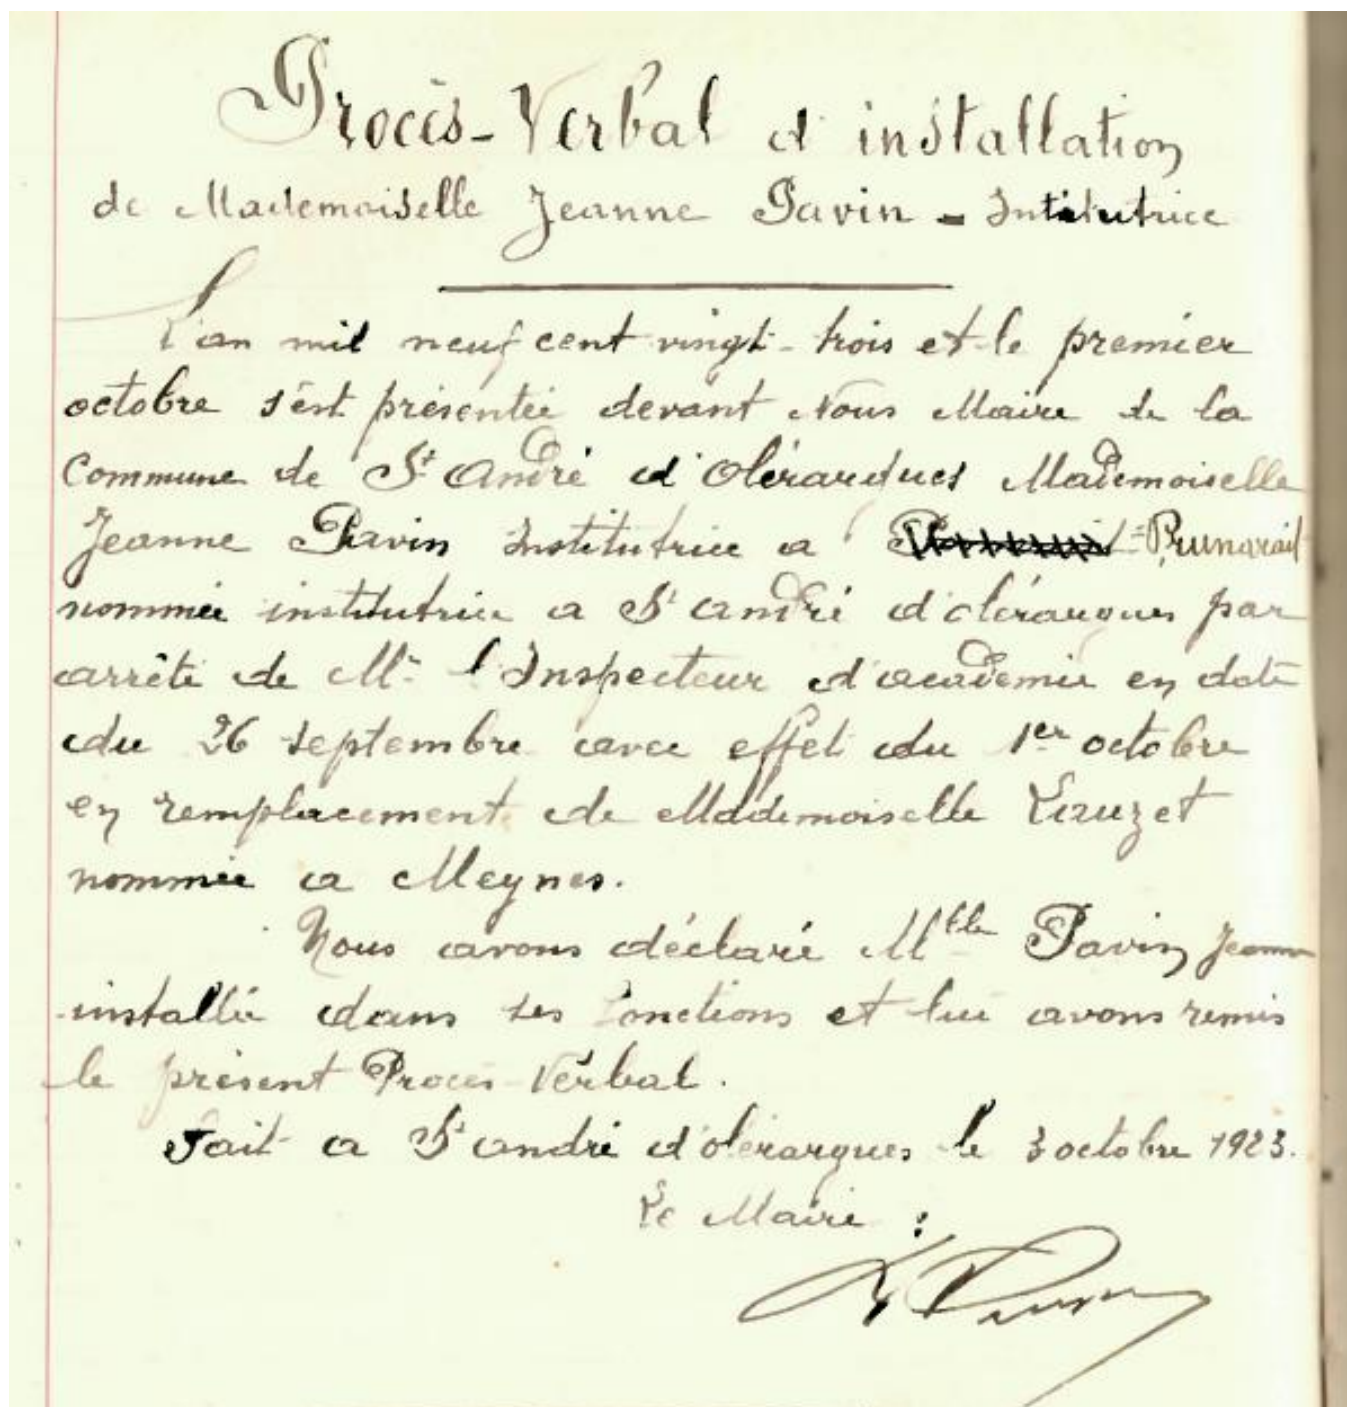 Procès-Verbal d'installation
de Mademoiselle Jeanne Pavin - Institutrice
L'an mil neuf cent vingt-trois et le premier
octobre s'est présentée devant Nous Maire de la
Commune de St André d'Olérargues Mademoiselle
Jeanne Pavin Institutrice a Prunarait
nommée institutrice a St André d'olérargues par
arrêté de Mr l'Inspecteur d'académie en date
du 26 septembre avec effet du 1er octobre
en remplacement de Mademoiselle Lauzet
nommée a Meynes.
Nous avons déclaré Melle Pavin Jeanne
installée dans ses fonctions et lui avons remis
le présent Procès-Verbal.
Fait a St andré d'olérargues le 3 octobre 1923.
Le Maire :